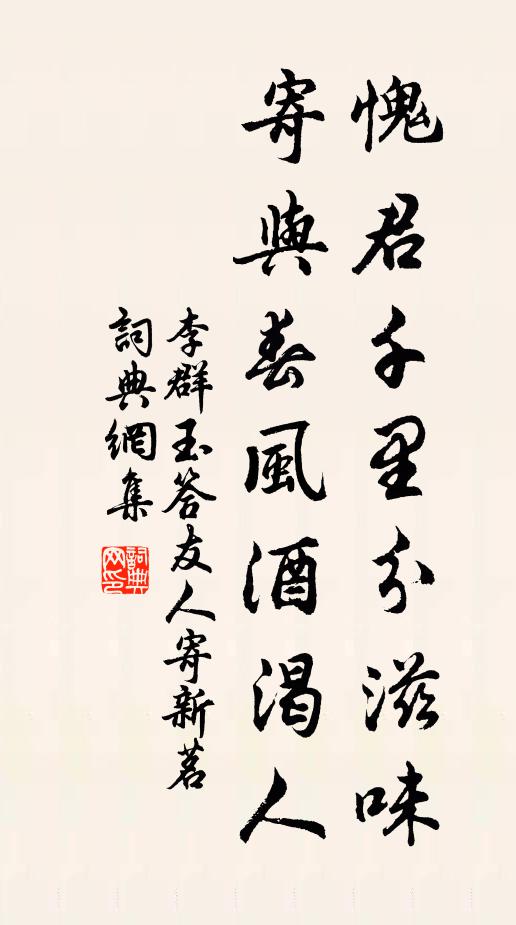 愧君千里分滋味
寄與春風酒渴人
李群玉答友人寄新茗
詞典網集
詞典网印